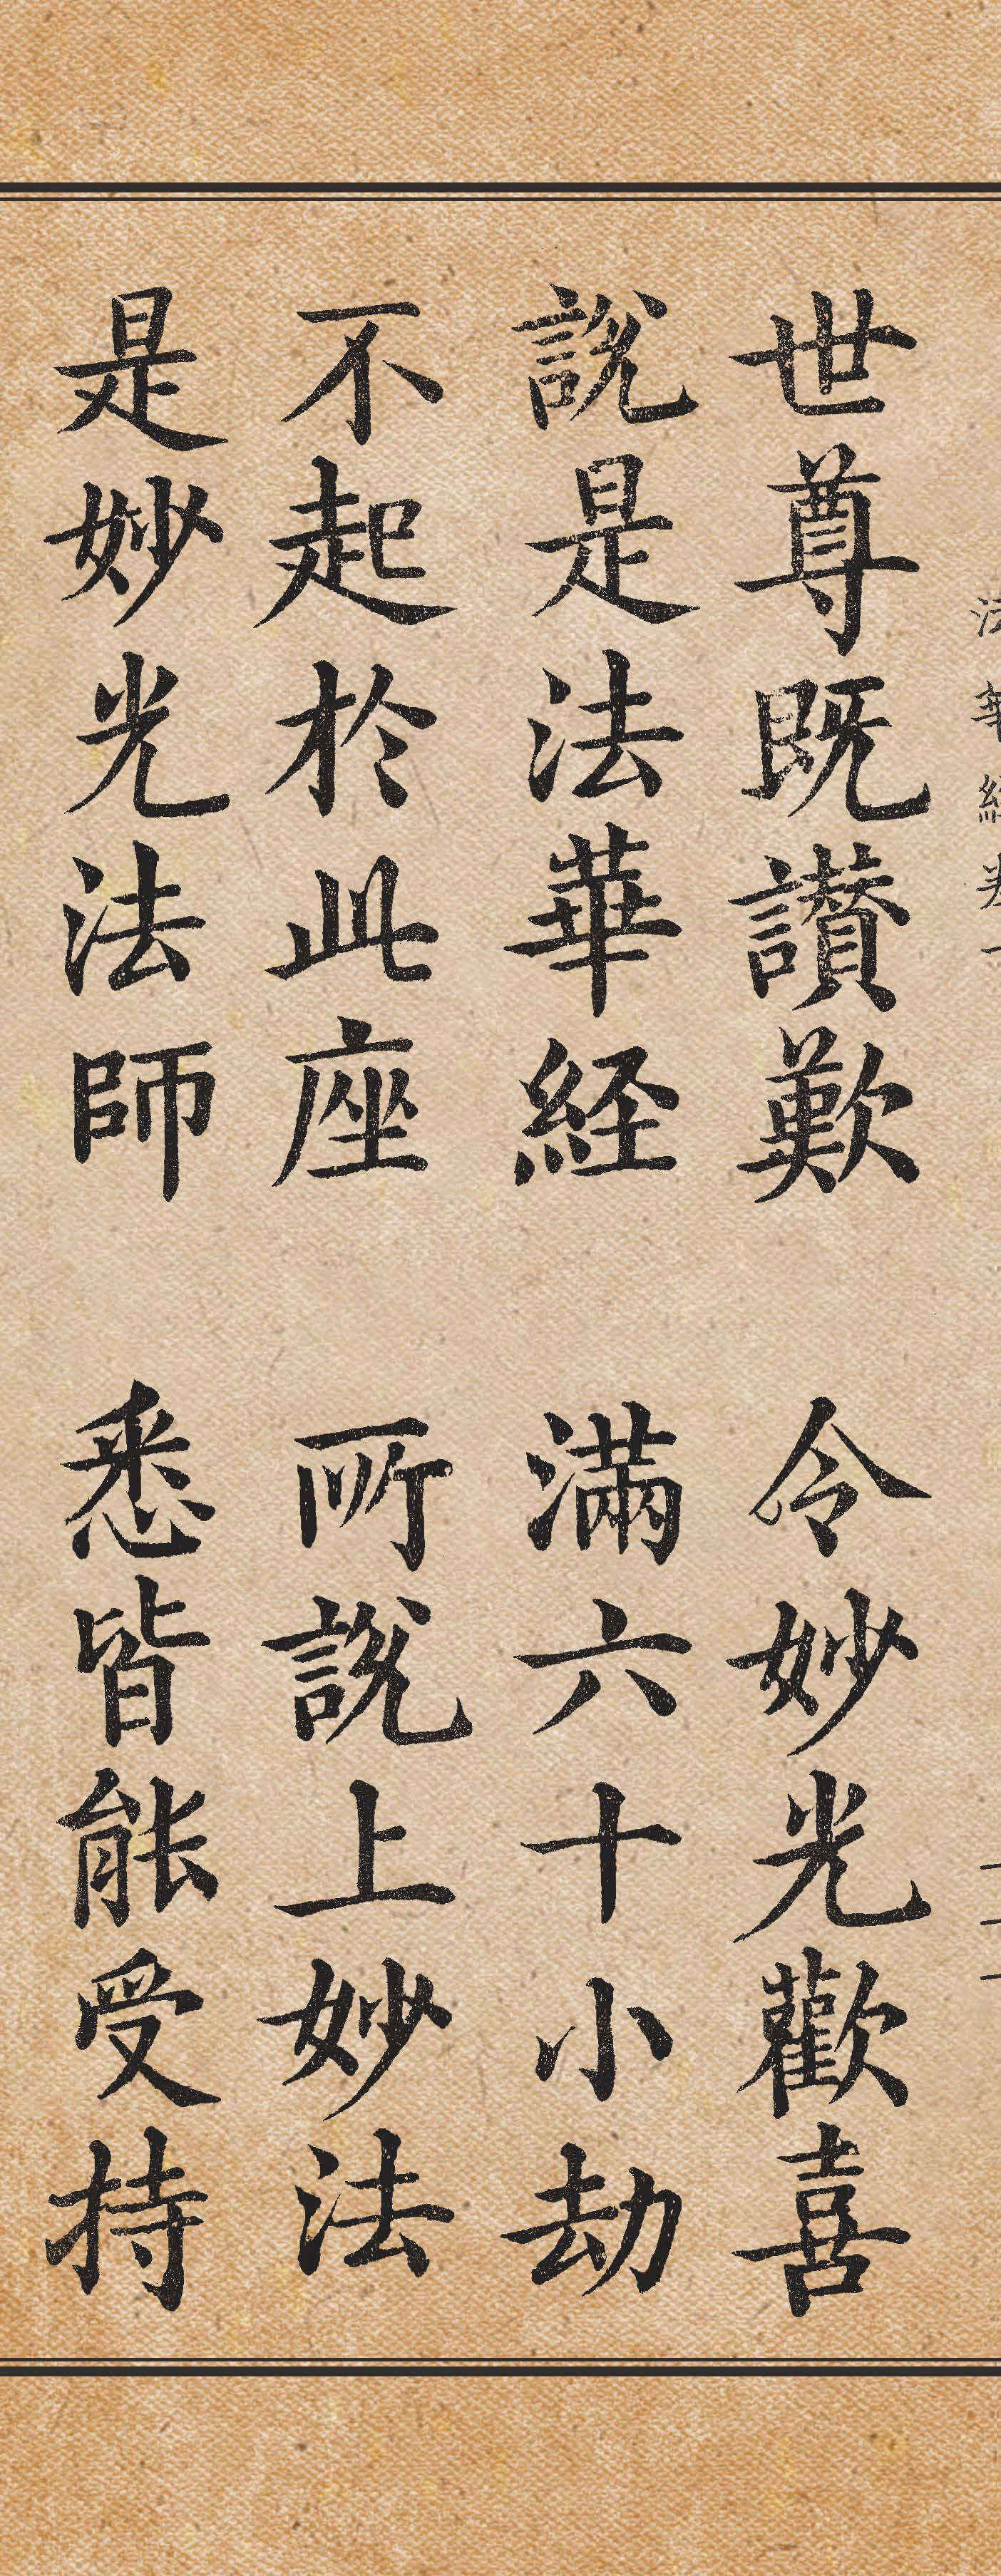 世尊既讃歎 令妙光歡喜
說是法華経 滿六十小劫
不起於此座 所說上妙法
是妙光法師 悉皆能受持